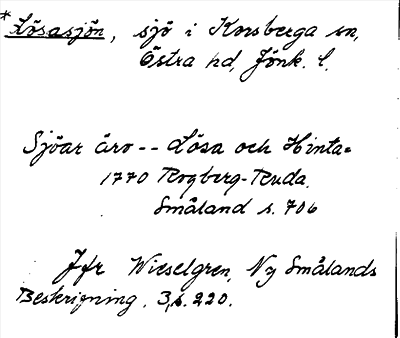 *Lösasjön, sjö i Korsberga sn,
Östra hd, Jönk. l.
Sjöar äro -- Lösa och Hinta=
1770 Rogberg-Ruda.
Småland s. 706
Jfr Wieselgren, Ny Smålands
Beskrifning, 3, s. 220.